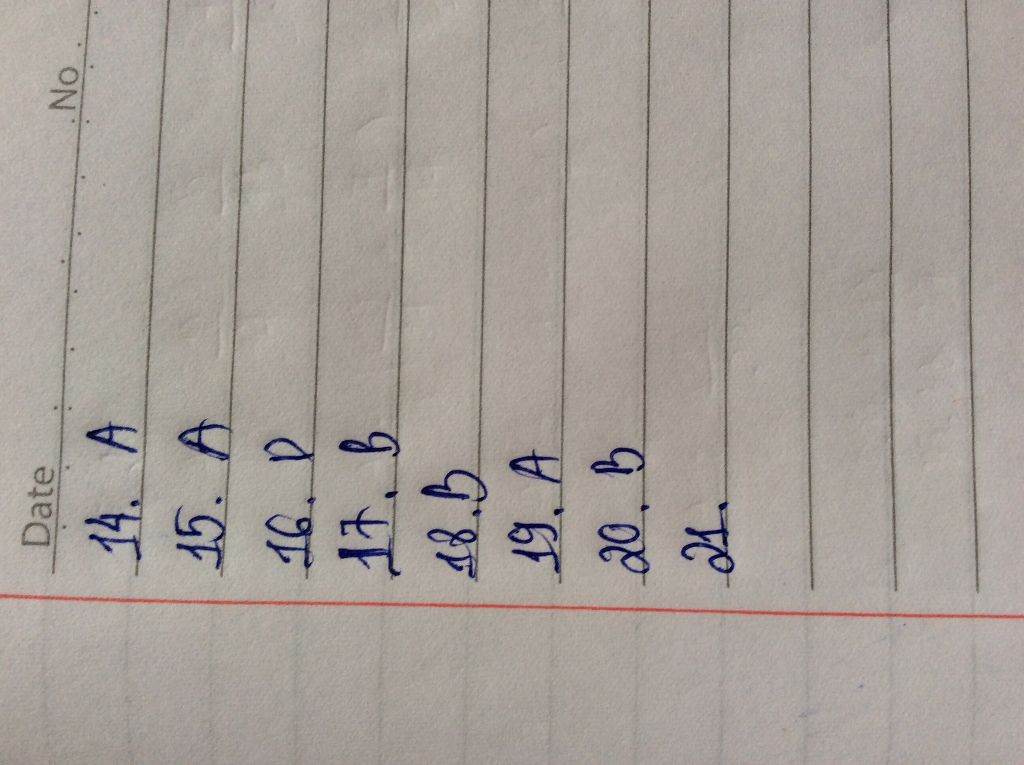 Date No
14. A
15. A
16. D
17. B
18. B
19. A
20. B
21.